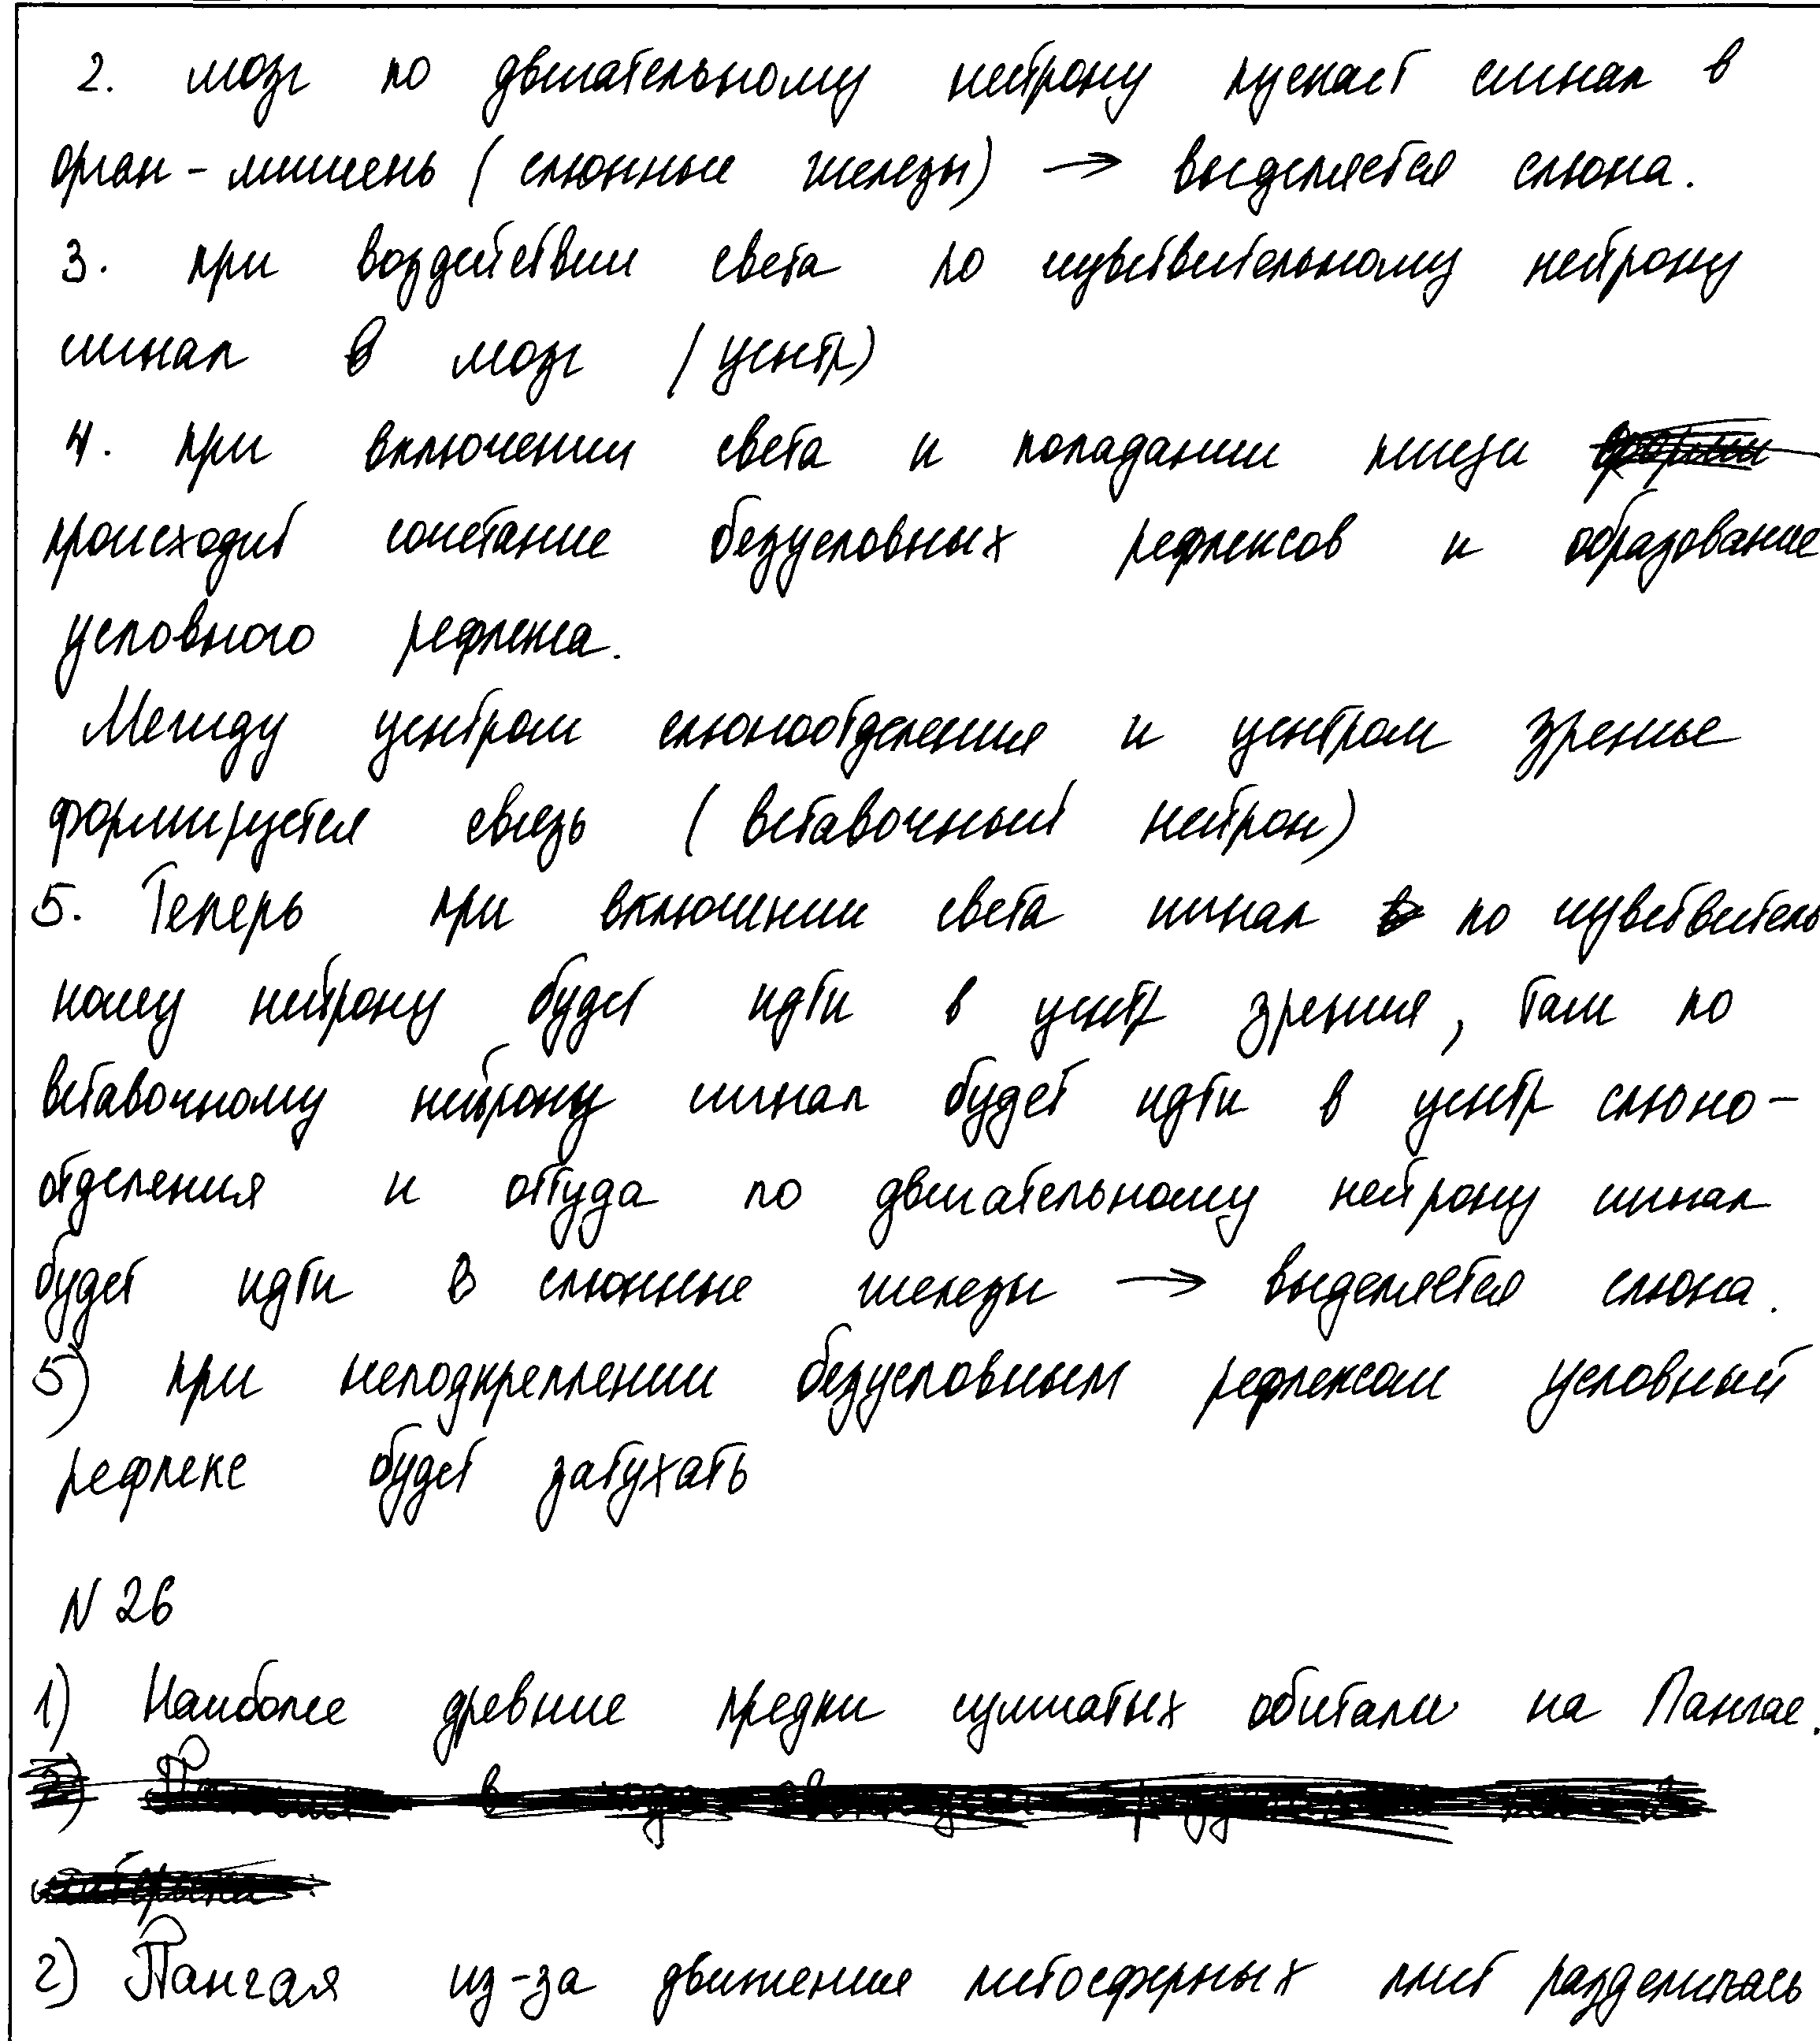 2. мозг по двигательному нейрону пускает сигнал в
орган-мишень (слюнные железы) → выделяется слюна.
3. при воздействии света по чувствительному нейрону
сигнал в мозг (центр)
4. при включении света и попадании пищи
происходит сочетание безусловных рефлексов и образование
условного рефлекса.
Между центром слюноотделения и центром зрение
формируется связь (вставочный нейрон)
5. Теперь при включении света сигнал по чувствитель
ному нейрону будет идти в центр зрения, там по
вставочному нейрону сигнал будет идти в центр слюно-
отделения и оттуда по двигательному нейрону сигнал
будет идти в слюнные железы → выделяется слюна.
5) при неподкреплении безусловным рефлексом условный
рефлекс будет затухать
N 26
1) Наиболее древние предки сумчатых обитали на Пангае.
2) Пангая из-за движения литосферных плит разделилась